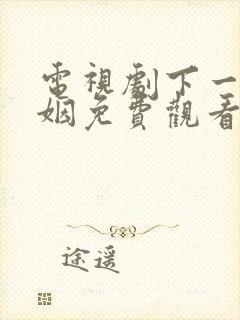 電視劇下一
姻免費觀看
途遥